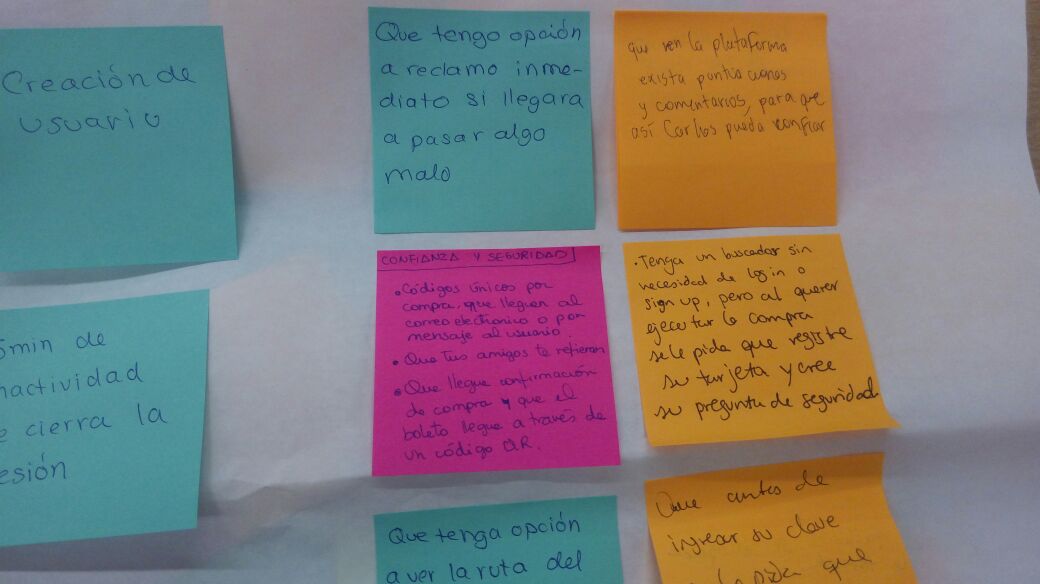 Creación de
usuario
Que tengo opción
a reclamo inme-
diato si llegara
a pasar algo
malo
que en la plataforma
exista
y comentarios, para que
así Carlos pueda confiar
CONFIANZA Y SEGURIDAD
• Códigos únicos por
compra, que lleguen al
correo electrónico o por
mensaje al usuario.
• Que tus amigos te refieran
• Que llegue confirmación
de compra y que el
boleto llegue a través de
un código QR.
• Tenga un buscador sin
necesidad de log in o
sign up, pero al querer
ejecutar la compra
se le pida que registre
su tarjeta y cree
su pregunta de seguridad
5min de
nactividad
e cierra la
esión
Que tenga opción
a ver la ruta del
Que antes de
ingresar su clave
pida que